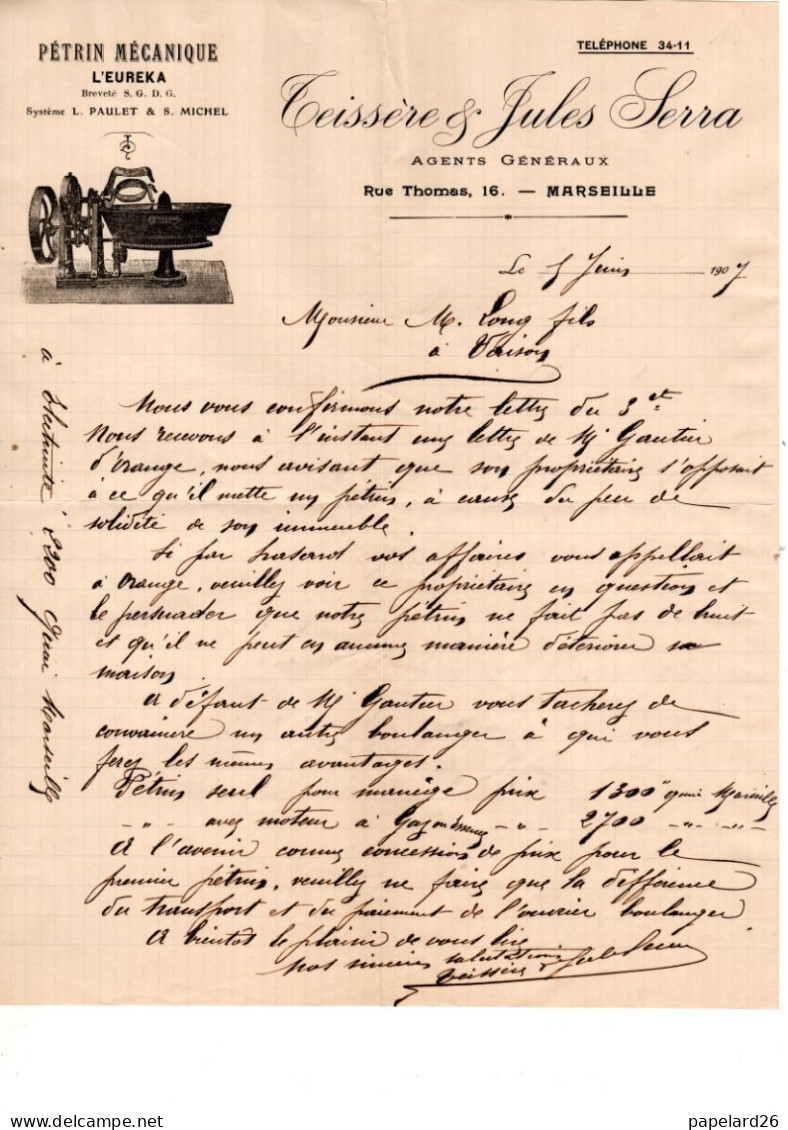 PÉTRIN MÉCANIQUE
L'EUREKA
Breveté S. G. D. G.
Système L. PAULET & S. MICHEL
TELÉPHONE 34-11
Teissère & Jules Serra
AGENTS GÉNÉRAUX
Rue Thomas, 16. — MARSEILLE
Le 5 Juin 1907
Monsieur M. Long fils
à Vaison
Nous vous confirmons notre lettre du 3 ct
Nous recevons à l'instant une lettre de Mr Gautier
d'orange, nous avisant que son propriétaire s'opposait
à ce qu'il mette un pétrin, à cause du peu de
solidité de son immeuble.
Si par hasard vos affaires vous appellait
à orange, veuillez voir ce propriétaire en question et
le persuader que notre pétrin ne fait pas de bruit
et qu'il ne peut en aucune manière déteriorer sa
maison.
A défaut de Mr Gautier vous tacherez de
convaincre un autre boulanger à qui vous
ferez les mêmes avantages.
Pétrin seul pour manège prix 1300" quai Marseille
-"- avec moteur à Gaz ou essence -"- 2700 -"- -"-
à électricité 2200 quai Marseille
A l'avenir comme concession de prix pour le
premier pétrin, veuillez ne faire que la différence
du transport et du paiement de l'ouvrier boulanger
A bientot le plaisir de vous lire
Nos sincères salutations
Teissère & Jules Serra
papelard26